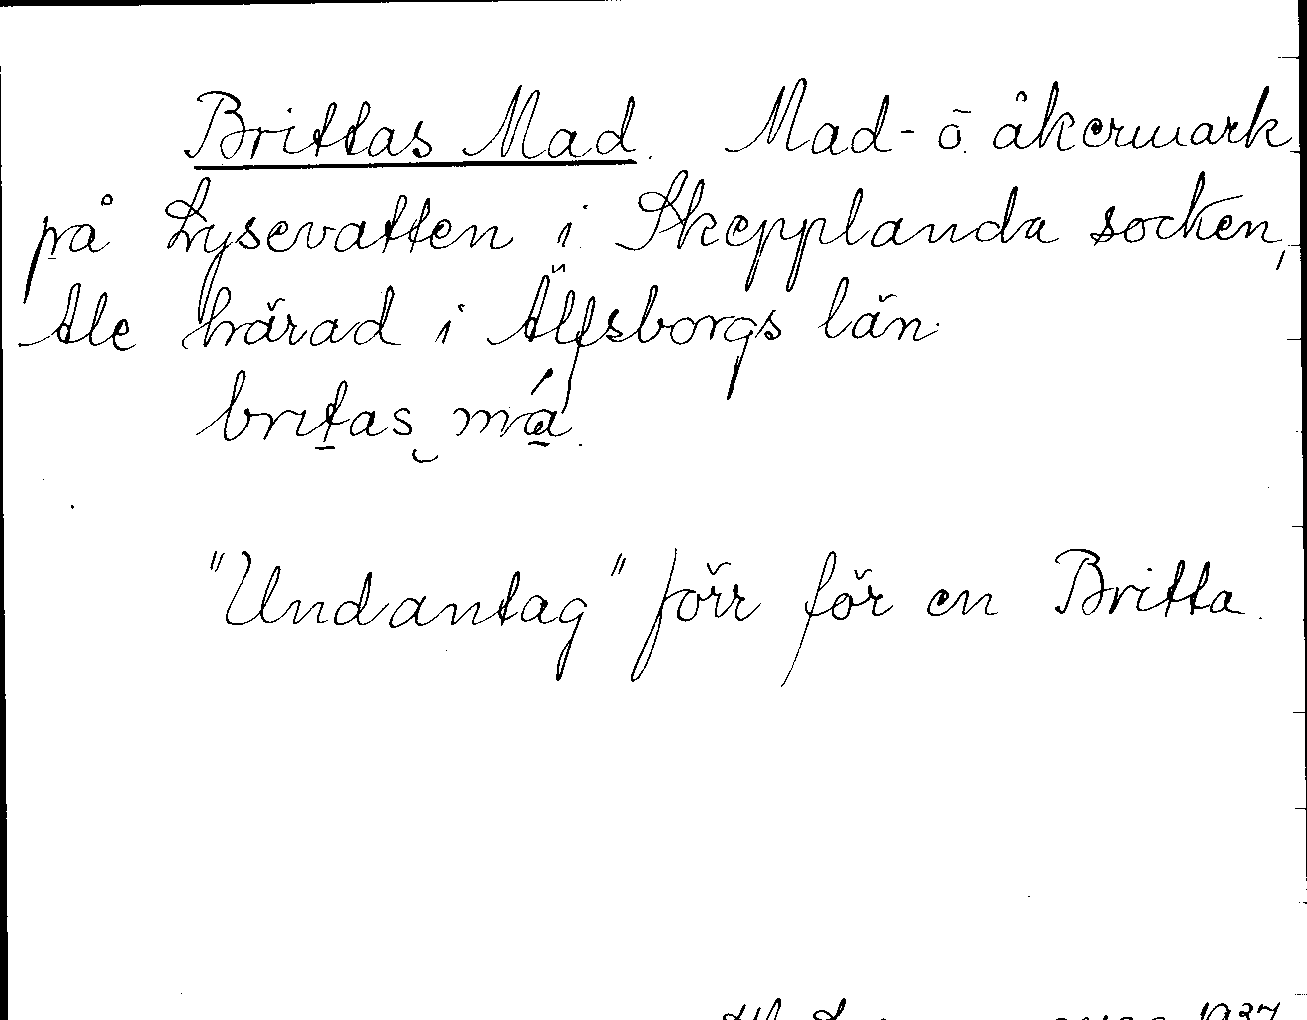 Brittas Mad. Mad- o. åkermark
på Lysevatten i Skepplanda socken,
Ale härad i Älfsborgs län.
britas má.
"Undantag" förr för en Britta.
1937